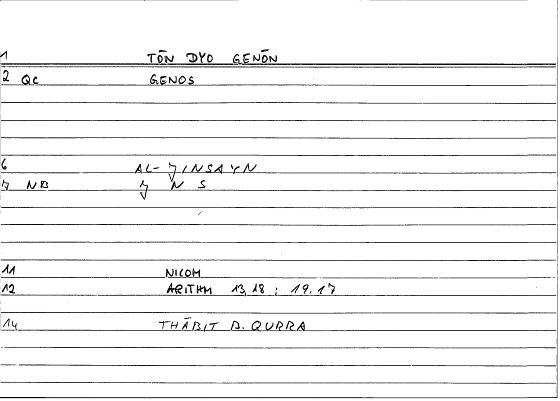 1 TŌN DYO GENŌN
2 QC GENOS
6 AL-ǦINSAYN
7 NB Ǧ N S
11 NICOM
12 ARITHM 13,18 : 19.17
14 THĀBIT B. QURRA